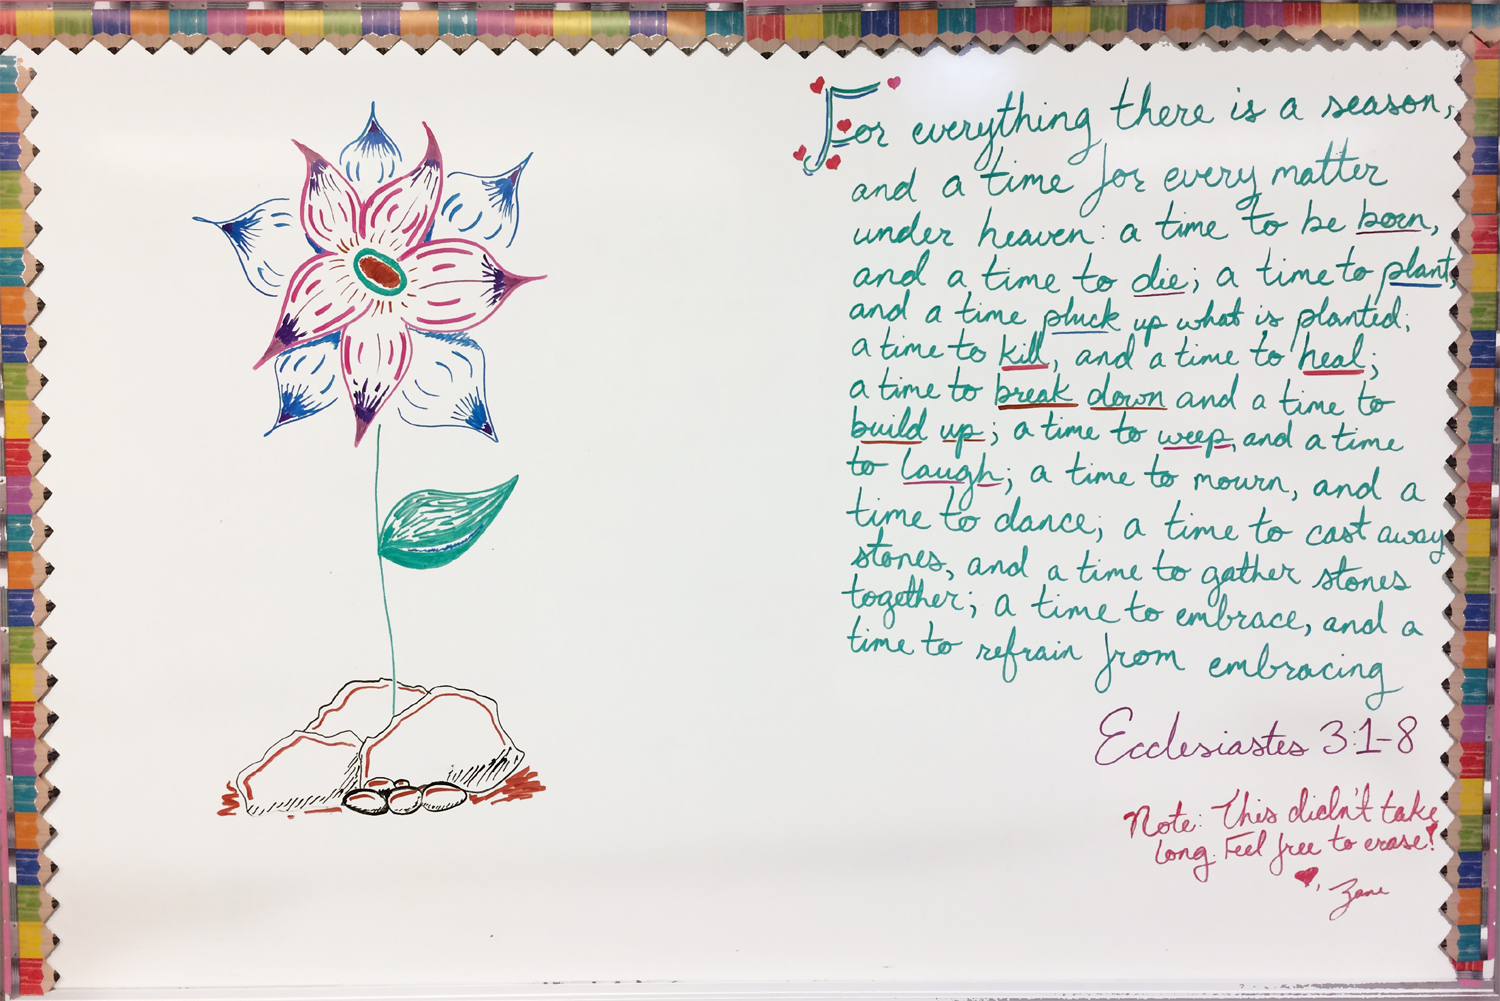 For everything there is a season,
and a time for every matter
under heaven: a time to be born,
and a time to die; a time to plant,
and a time pluck up what is planted;
a time to kill, and a time to heal;
a time to break down and a time to
build up; a time to weep, and a time
to laugh; a time to mourn, and a
time to dance; a time to cast away
stones, and a time to gather stones
together; a time to embrace, and a
time to refrain from embracing
Ecclesiastes 3:1-8
Note: This didn't take
long. Feel free to erase!
Zane